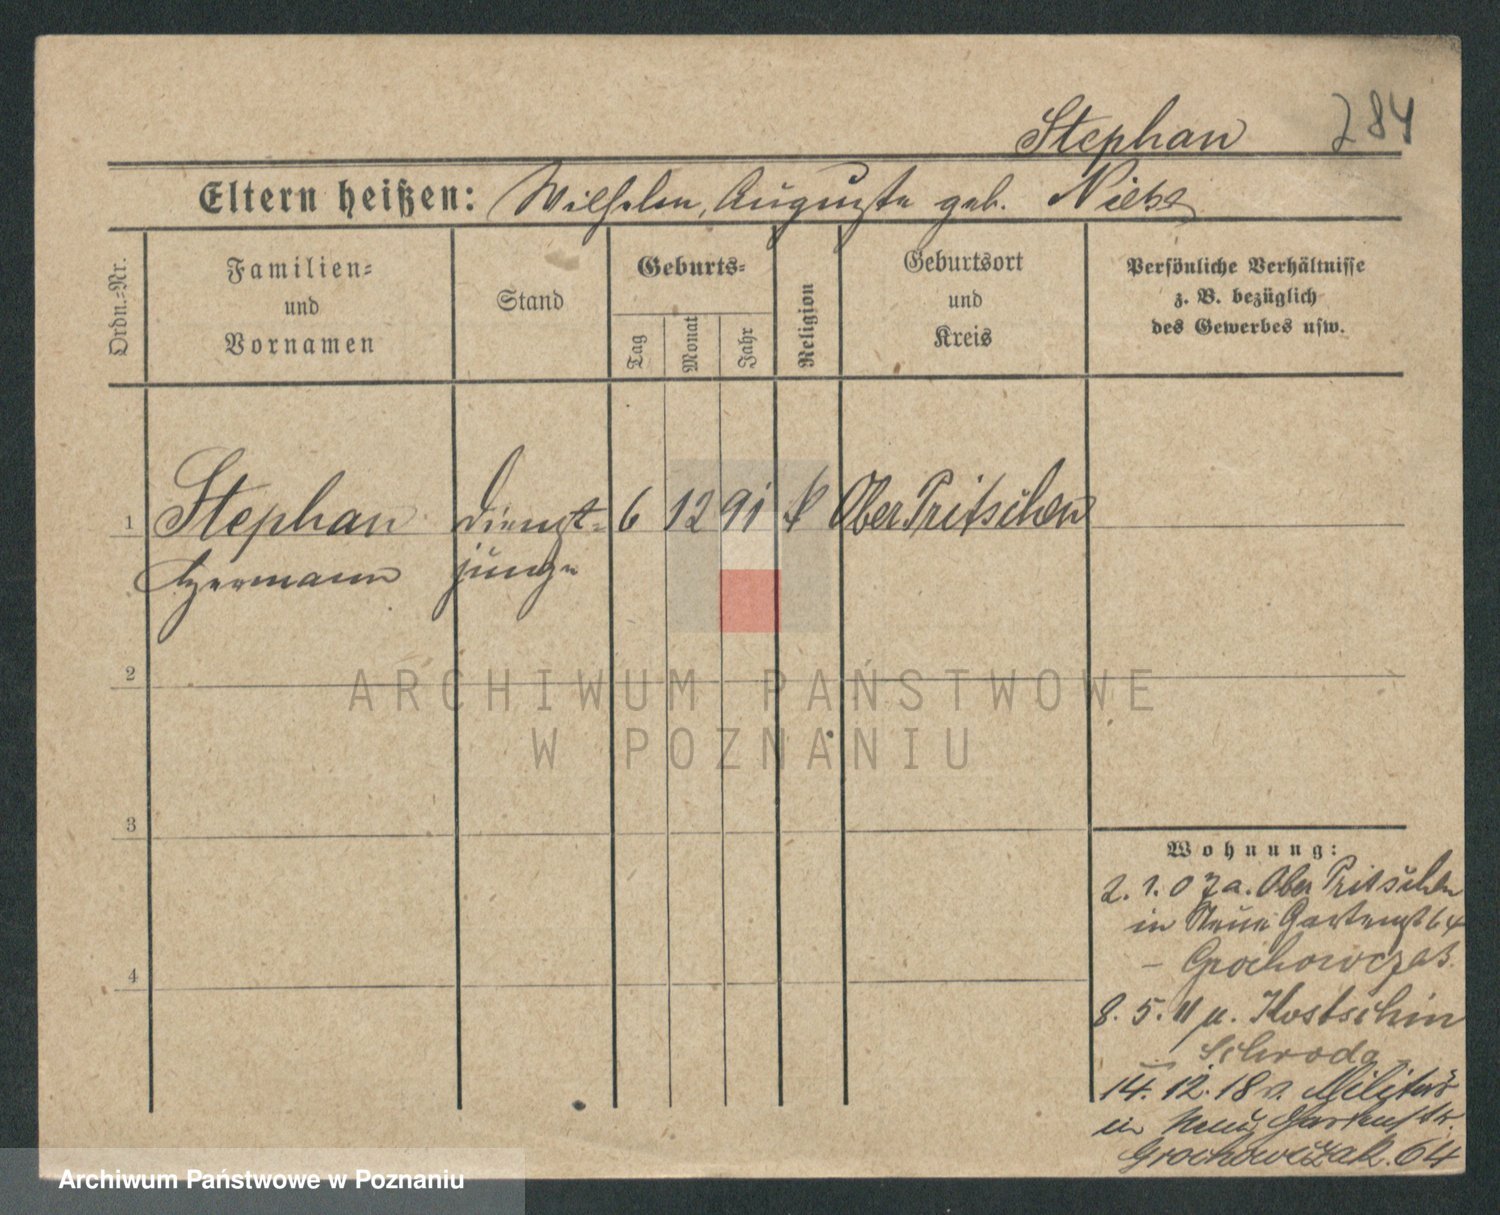 Stephan 284
Eltern heißen: Wilhelm, Auguste geb.
Ordn.-Nr.
Familien-
und
Vornamen
Stand
Geburts-
Tag
Monat
Jahr
Religion
Geburtsort
und
Kreis
Persönliche Verhältnisse
z. B. bezüglich
des Gewerbes usw.
1 Stephan Dienst- 6 12 91 k Ober Pritschen
Hermann junge
2
3
4
Wohnung:
2. 1. 07 a. Ober Pritschen
in Neue Gartenst 64
- Grochowczak.
8. 5. 11 n. Kostschin
Schroda
14. 12. 18 v. Militär
in Neue Gartenstr.
Grochowczak. 64
ARCHIWUM PAŃSTWOWE
W POZNANIU
Archiwum Państwowe w Poznaniu